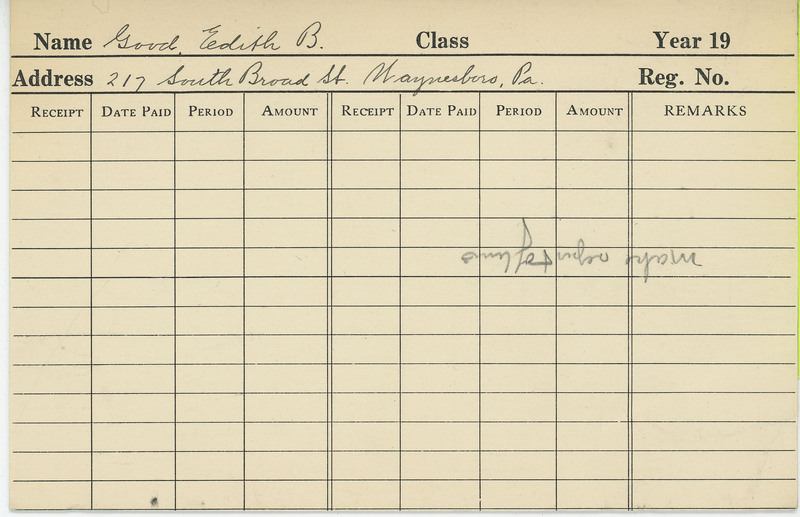 Name Good, Edith B. Class Year 19
Address 217 South Broad St. Waynesboro, Pa. Reg. No.
RECEIPT DATE PAID PERIOD AMOUNT RECEIPT DATE PAID PERIOD AMOUNT REMARKS
make